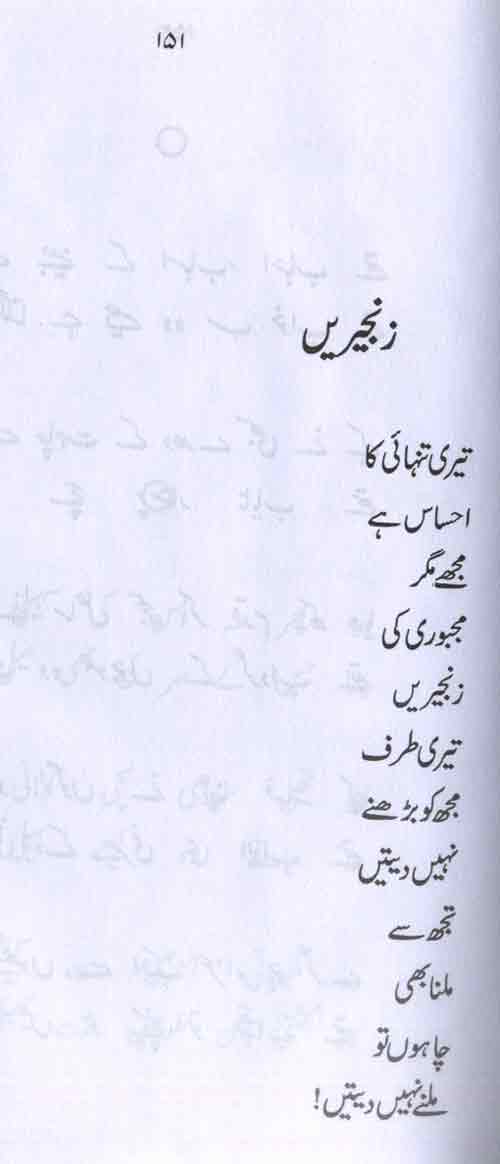 ۱۵۱
زنجیریں
تیری تنہائی کا
احساس ہے
مجھے مگر
مجبوری کی
زنجیریں
تیری طرف
مجھ کو بڑھنے
نہیں دیتیں
تجھ سے
ملنا بھی
چاہوں تو
ملنے نہیں دیتیں!